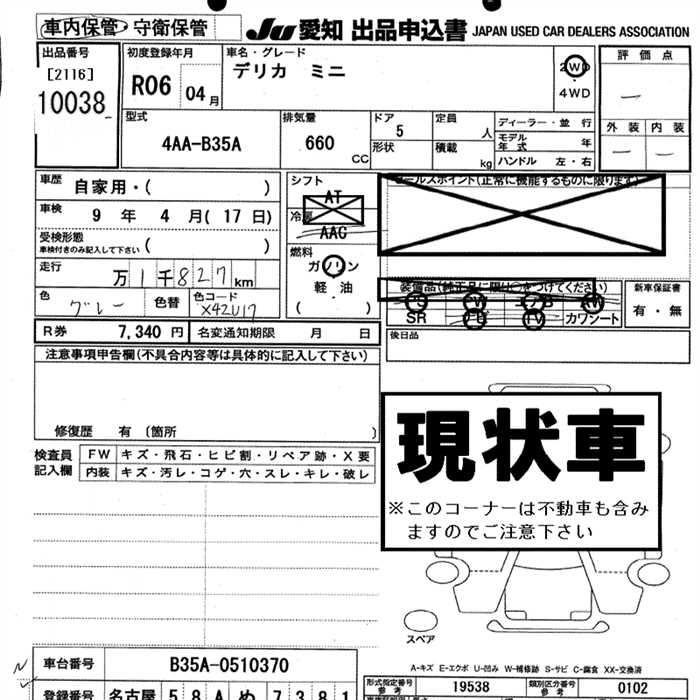 車内保管・守衛保管
JU 愛知 出品申込書 JAPAN USED CAR DEALERS ASSOCIATION
出品番号
[2116]
10038
初度登録年月
R06 04月
車名・グレード
デリカ ミニ
2WD
4WD
評価点
外装 内装
型式
4AA-B35A
排気量
660
CC
ドア
5
形状
定員
人
積載
kg
ディーラー・並 行
モデル年式 年
ハンドル 左・右
車歴 自家用・( )
車検 9 年 4 月(17 日)
受検形態
車検付きのみ記入して下さい ( )
走行 万 1 千 827 km
色 グレー 色替 色コード X42U17
R券 7,340 円 名変通知期限 月 日
シフト
AT
冷房
AAC
燃料
ガソリン
軽・油
( )
セールスポイント(正常に機能するものに限ります)
装備品(純正品に限り○をつけてください)
SR カワシート
TV
新車保証書
有・無
後日品
注意事項申告欄(不具合内容等は具体的に記入して下さい)
修復歴 有 (箇所 )
検査員記入欄
FW キズ・飛石・ヒビ割・リペア跡・X要
内装 キズ・汚レ・コゲ・穴・スレ・キレ・破レ
現状車
※このコーナーは不動車も含み
ますのでご注意下さい
スペア
A-キズ E-エクボ U-凹み W-補修跡 S-サビ C-腐食 XX-交換済
車台番号 B35A-0510370
型式指定番号 参考 19538 類別区分番号 参考 0102
登録番号 名古屋 58A め 7381